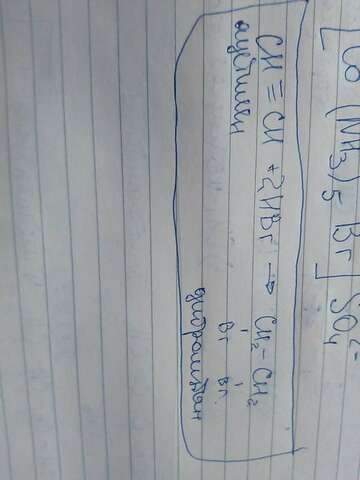 [Co (NH3)5 Br] SO4 2-
CH ≡ CH + 2HBr → CH2 - CH2
ацетилен
Br Br
дибромэтан